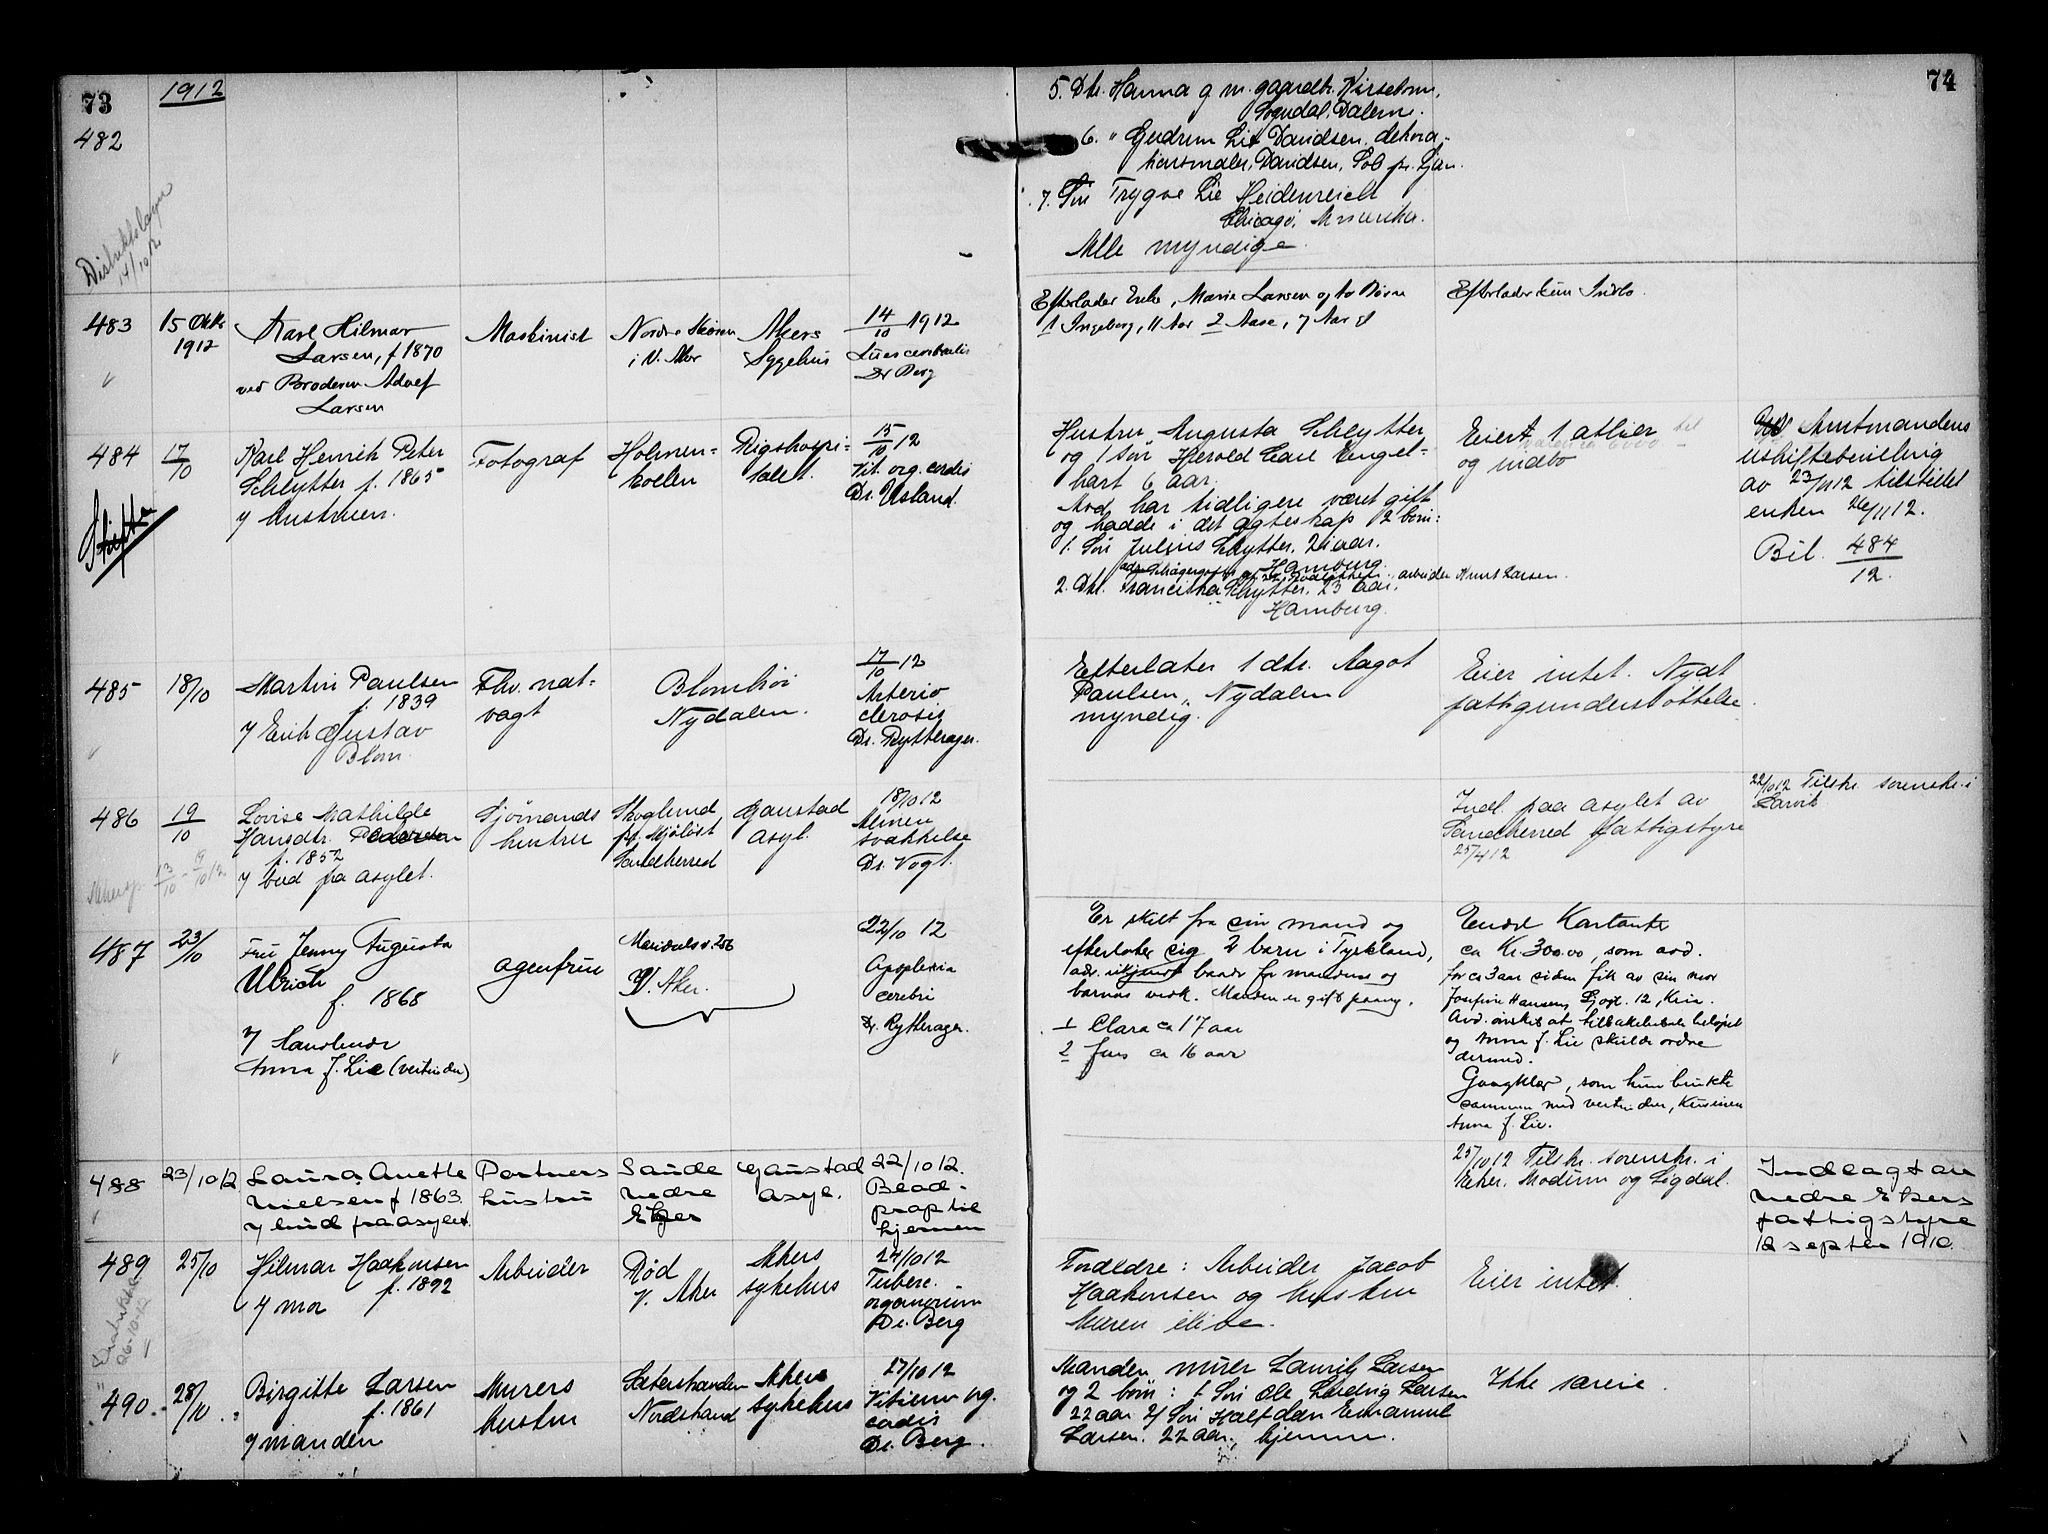 73
1912
74
482
Distriktslægen
14/10 12
5. Dtr. Hanna g. m. gaardbr.
Sogndal, Dalerne.
6. " Gudrun Lie Davidsen, dekora-
tionsmaler, Davidsen, pr. Ljan.
7. Søn Trygve Lie Heidenreich
Chicago, Amerika.
Alle myndige.
483
15 Okt.
1912
Karl Hilmar
Larsen, f 1870
ved Broderen Adolf
Larsen
Maskinist
Nordre Skøien
i V. Aker
Akers
Sygehus
14/10 1912
Lues cerebralis
Dr Berg
Efterlader Enke, Marie Larsen og to Børn
1 Ingeborg, 11 Aar 2 Aase, 7 Aar
Efterlader kun Indbo.
484
17/10
Skifte
Karl Henrik Peter
Schlytter f. 1865
v/ hustruen.
Fotograf
Holmen-
kollen
Rigshospi-
talet.
15/10 12
Vit. org. cordis
Dr. Usland.
Hustru Augusta Schlytter
og 1 søn Herold Carl Engel-
hart 6 aar.
Avd. har tidligere været gift
og hadde i det egteskap 2 børn:
1. Søn Julius Schlytter, 21 aar.
Hamburg.
arbeider Knut Larsen.
2. Dtr. Franciska Schlytter. 23 aar.
Hamburg.
Eiert 1 atlier
og indbo
Amtmandens
uskiftebevilling
av 23/11 12 tilstillet
enken 26/11 12.
Bil. 484/12.
485
18/10
Martin Paulsen
f. 1839
v/ Erik Gustav
Blom.
Fhv. nat-
vagt
Blomhøi
Nydalen.
17/10 12
Arterio
clerosis
Dr. Rytterager.
Efterlater 1 dtr. Aagot
Paulsen, Nydalen
myndig.
Eier intet. Nydt
fattigunderstøttelse.
486
19/10
Lovise Mathilde
Hansdtr. Pedersen
f. 1852
v/ bud fra asylet.
Sjømands
hustru
Skoglund
pr. Mjølist
Sandherred
Gaustad
asyl.
18/10 12
Almen
svakkelse
Dr. Vogt.
Indl. paa asylet av
Sandherred fattigstyre
25/4 12
22/10 12 Tilskr. sorenskr. i
Larvik
487
23/10
Fru Jenny Augusta
Ulrich
f. 1868
v/
Anna J. Lie (vertinden)
agentfrue
Maridalsv. 256
V. Aker.
22/10 12
Apoplexia
cerebri
Dr. Rytterager.
Er skilt fra sin mand og
efterlater sig 2 barn i Tyskland,
adr. ukjendt baade for mandens og
barnas vedk. Manden er gift paany.
1 Clara ca 17 aar
2 Jens ca 16 aar
Endel Kontanter
ca Kr 300.00, som avd.
for ca 3 aar siden fik av sin mor
Josefine Hansen, 12, Kria.
Avd. ønsket at tilbakebetale beløpet
og Anna J. Lie skulde ordne
dermed.
Gangklær, som hun brukte
sammen med vertinden, Kusinen
Anna J. Lie.
488
23/10 12
Laura Anette
Nielsen f 1863.
v/ bud fra asylet.
Portners
hustru
Sande
nedre
Eker
Gaustad
asyl.
22/10 12.
Blod-
prop til
hjernen
25/10 12 Tilskr. sorenskr. i
Eker, Modum og Sigdal.
Indlagt av
nedre Ekers
fattigstyre
12 septbr 1910.
489
25/10
Hilmar Haakonsen
f. 1892
v/ mor
Arbeider
Rød
V. Aker
Akers
sykehus
24/10 12
Tuberc.
organorum
Dr. Berg
Forældre: Arbeider Jacob
Haakonsen og hustru
Maren ilive.
Eier intet.
26-10-12
490.
28/10
Birgitte Larsen
f. 1861
v/ manden
Murers
hustru
Sæterstranden
Nordstrand
Akers
sykehus
27/10 12
Vitium org.
cordis
Dr. Berg.
Manden murer Lauritz Larsen
og 2 børn: 1 Søn Ole Ludvig Larsen
22 aar 2/ Søn Halfdan Emanuel
Larsen. 22 aar, hjemme.
Ikke særeie.